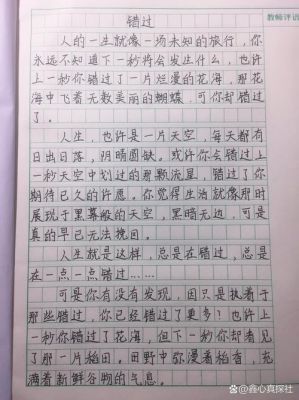 教师评语
错过
人的一生就像一场未知的旅行，你
永远不知道下一秒将会发生什么，也许
上一秒你错过了一片烂漫的花海，那花
海中飞着无数美丽的蝴蝶，可你却错过
了。
人生，也许是一片天空，每天都有
日出日落，阴晴圆缺。或许你会错过上
一秒天空中划过的那颗流星，错过了你
期待已久的许愿。你觉得生活就像那时
展现于黑幕般的天空，黑暗无边，可是
真的早已无法挽回。
人生就是这样，总是在错过，总是
在一点一点错过……
可是你有没有发现，因只是执着于
那些错过，你已经错过了更多？也许上
一秒你错过了花海，但下一秒你却看见
了那一片稻田。田野中弥漫着稻香，充
满着新鲜谷物的气息。
@鑫心真探社